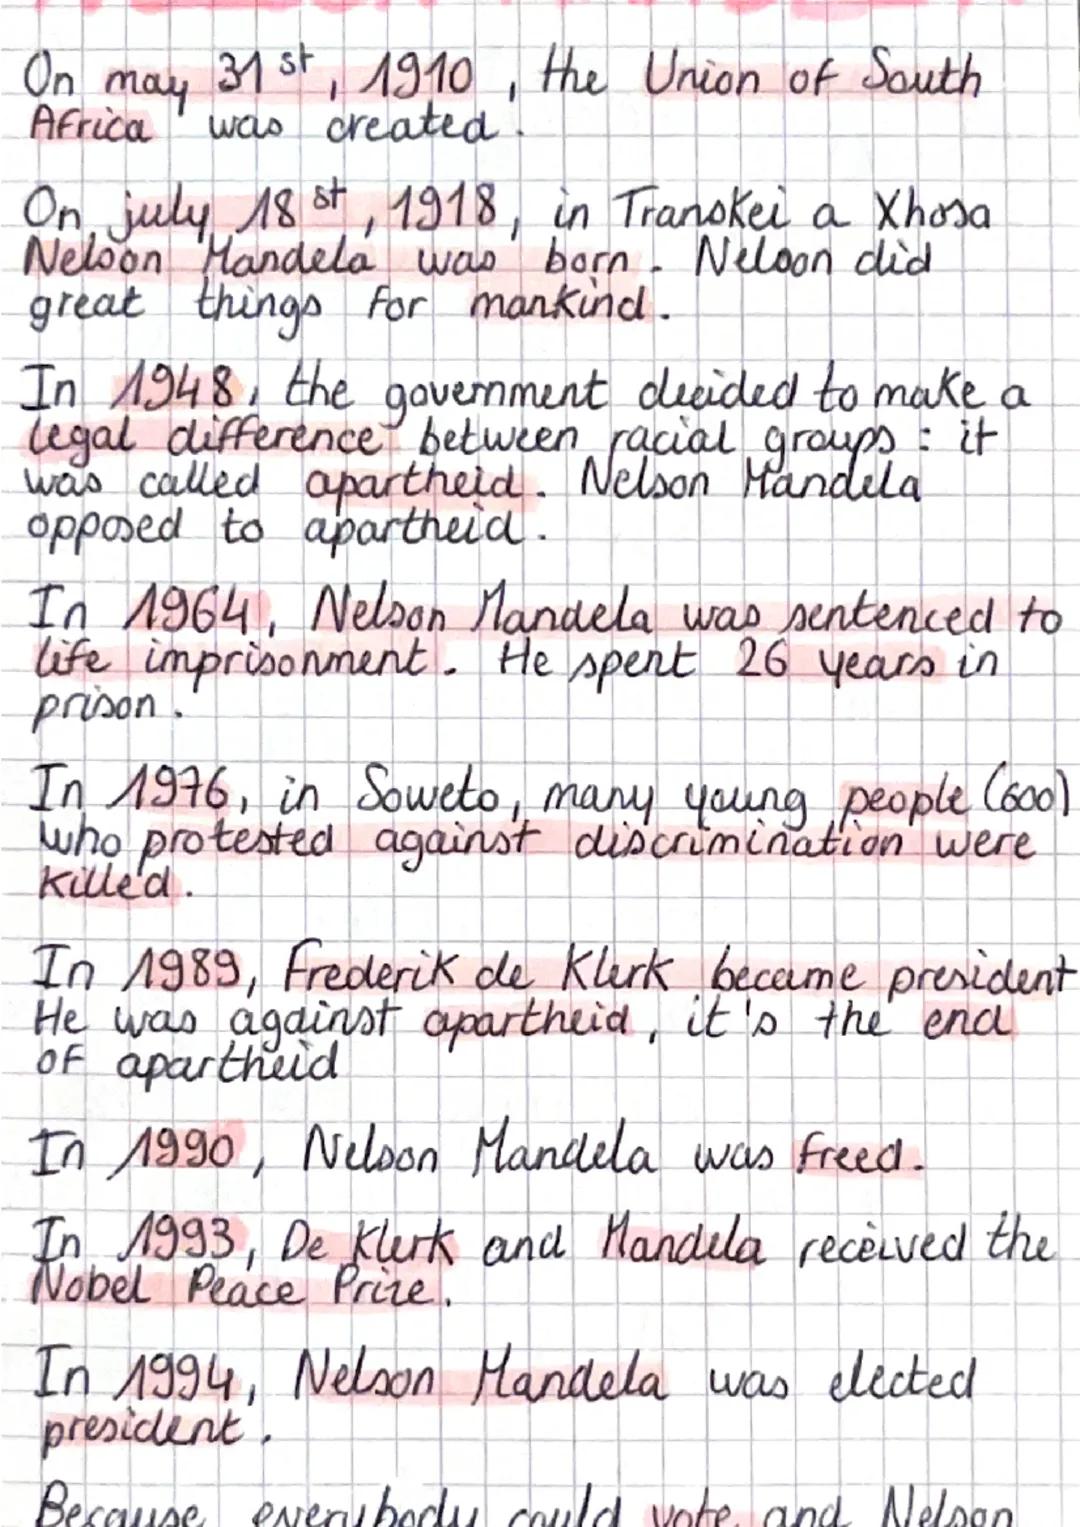 On may 31st, 1910, the Union of South
Africa was created.
On july 18st, 1918, in Transkei a Xhosa
Nelson Mandela was born. Nelson did
great things for mankind.
In 1948, the government decided to make a
legal difference between racial groups : it
was called apartheid. Nelson Mandela
opposed to apartheid.
In 1964, Nelson Mandela was sentenced to
life imprisonment. He spent 26 years in
prison.
In 1976, in Soweto, many young people (600)
who protested against discrimination were
killed.
In 1989, Frederik de Klerk became president
He was against apartheid, it's the end
of apartheid
In 1990, Nelson Mandela was freed.
In 1993, De Klerk and Mandela received the
Nobel Peace Prize.
In 1994, Nelson Mandela was elected
president.
Because everybody could vote and Nelson